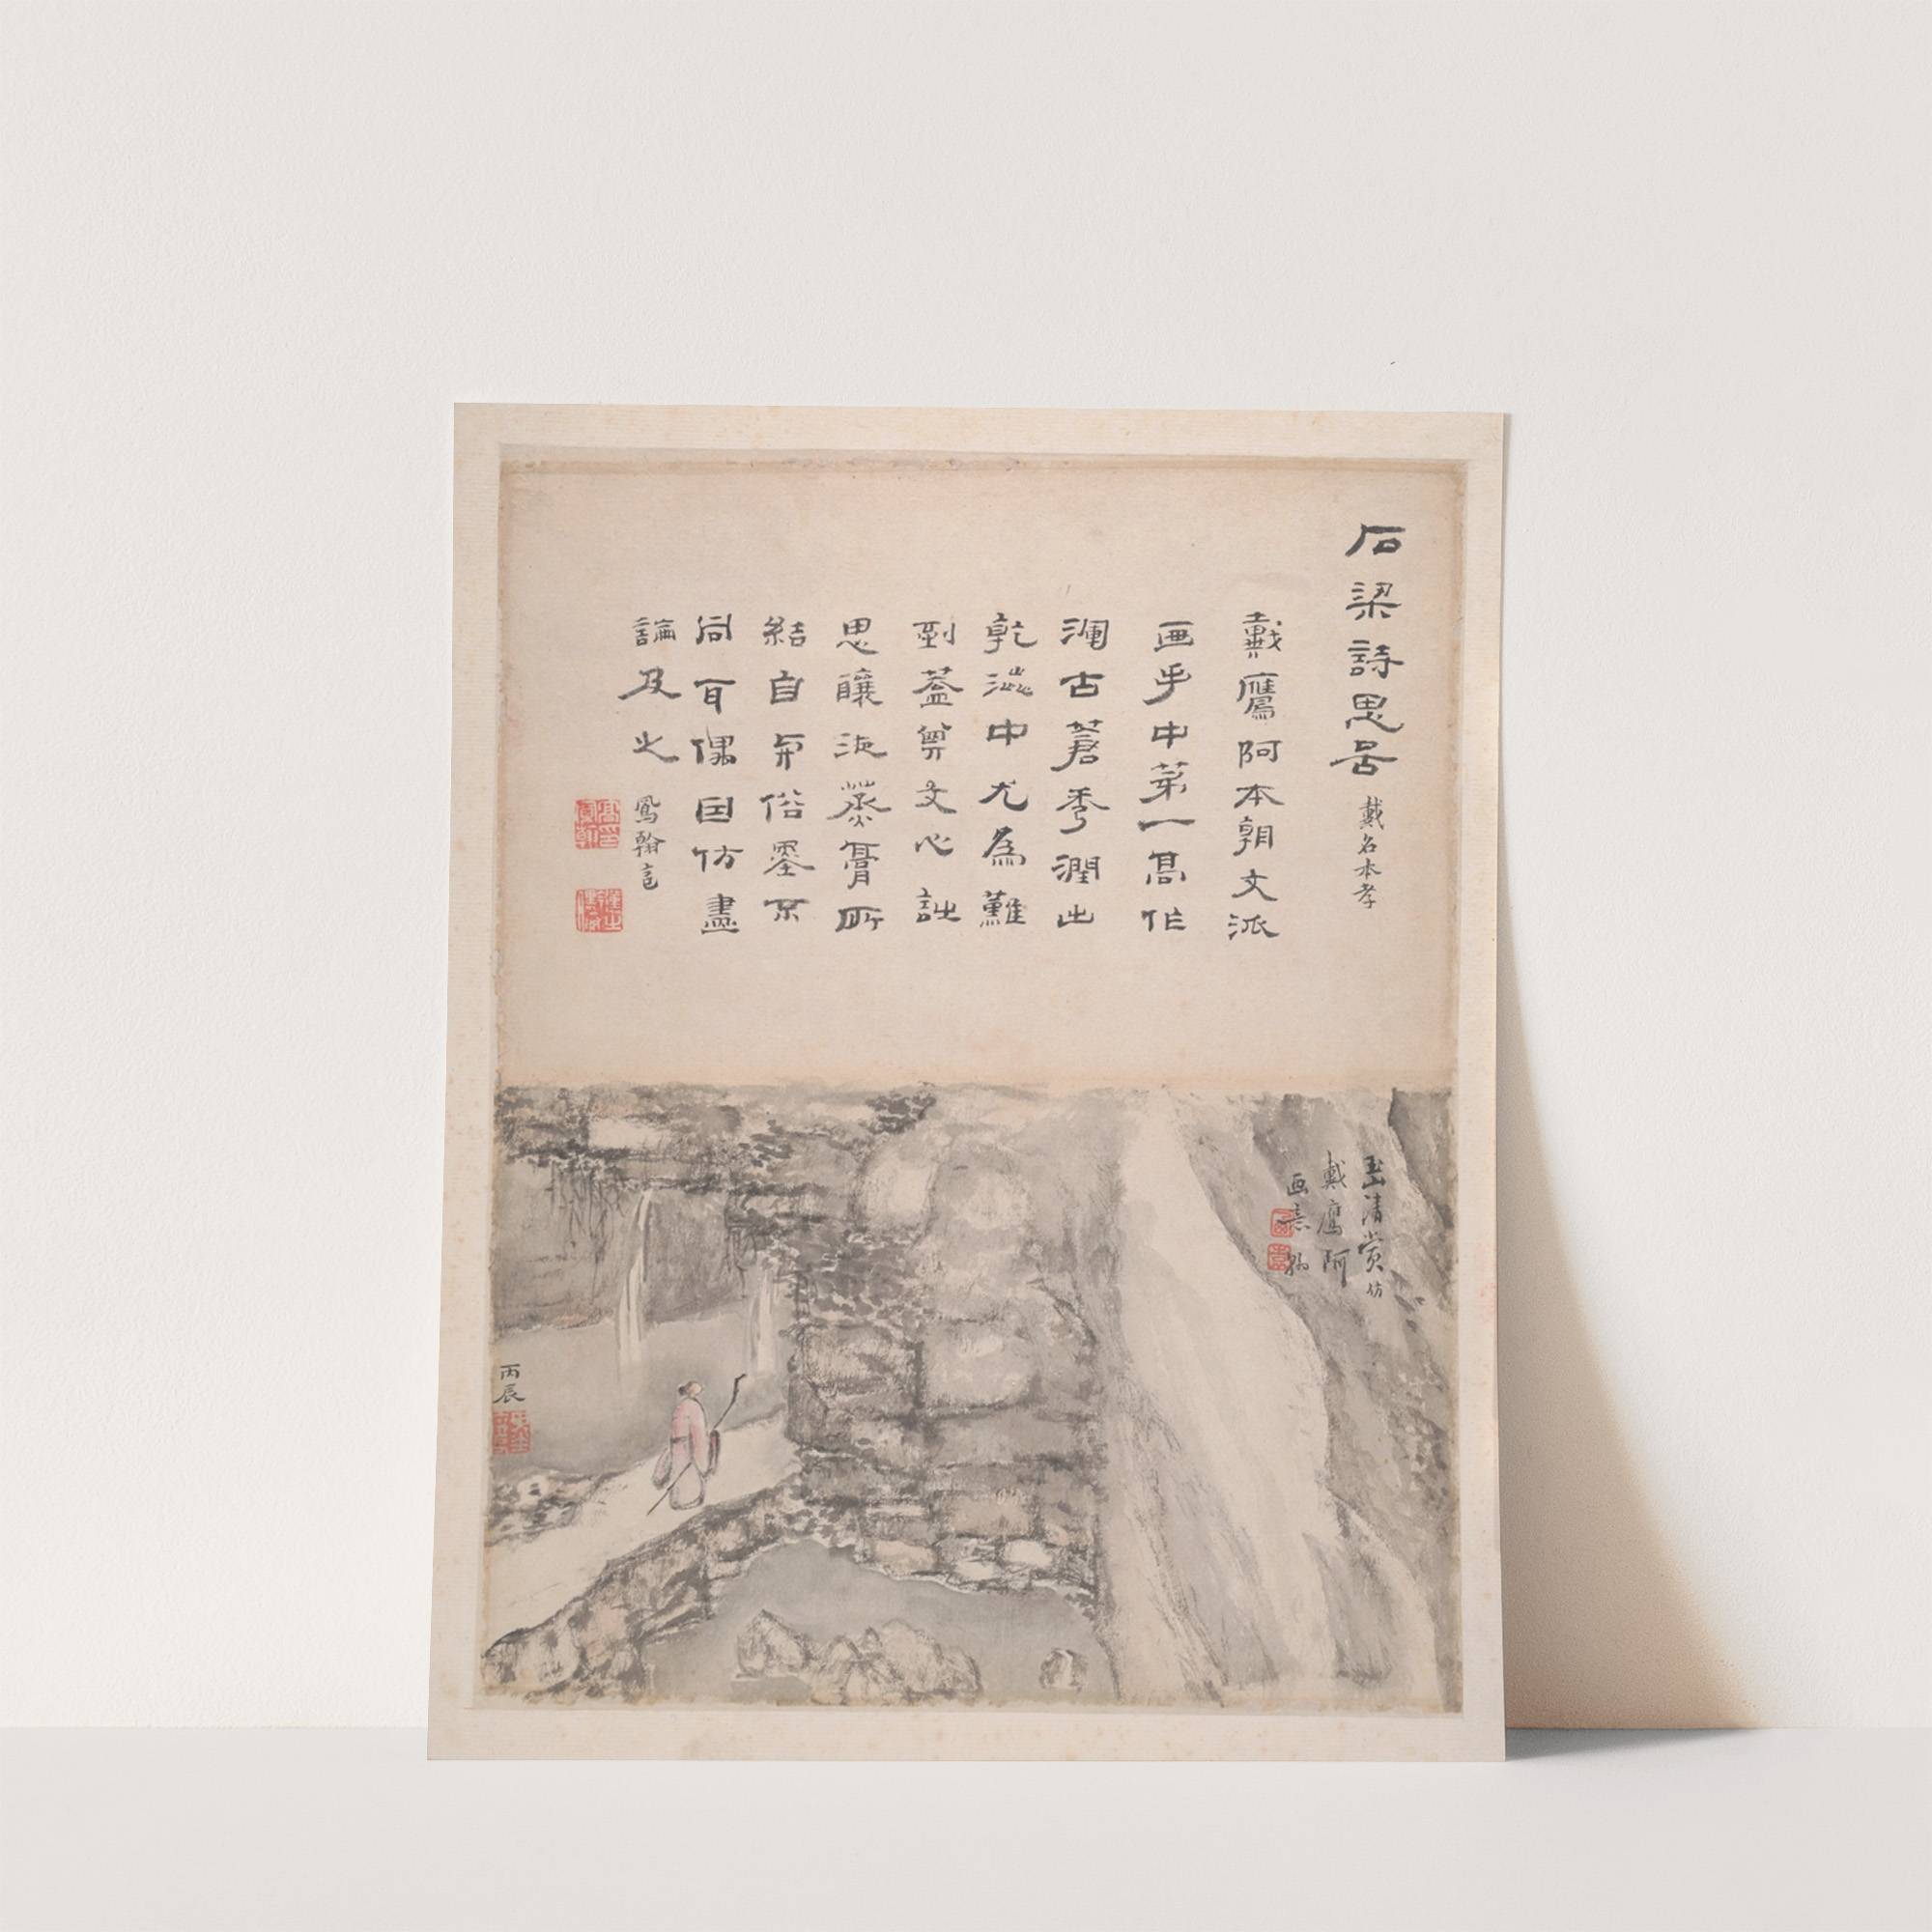 石梁詩思啚 戴名本孝
戴鷹阿本朝文派
画手中苐一高作
瀾古蒼秀潤出
乾澁中尤為難
到蓋穿文心詩
思釀泡蒸膏所
結自與俗墨不
同耳偶因仿畫
論及之 鳳翰記
玉清賞仿
戴鷹阿
画意
丙辰